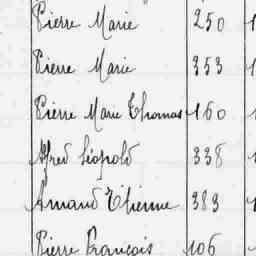 Pierre Marie 250
Pierre Marie 353
Pierre Marie Thomas 160
Alfred Léopold 338
Armand Etienne 383
Pierre François 106